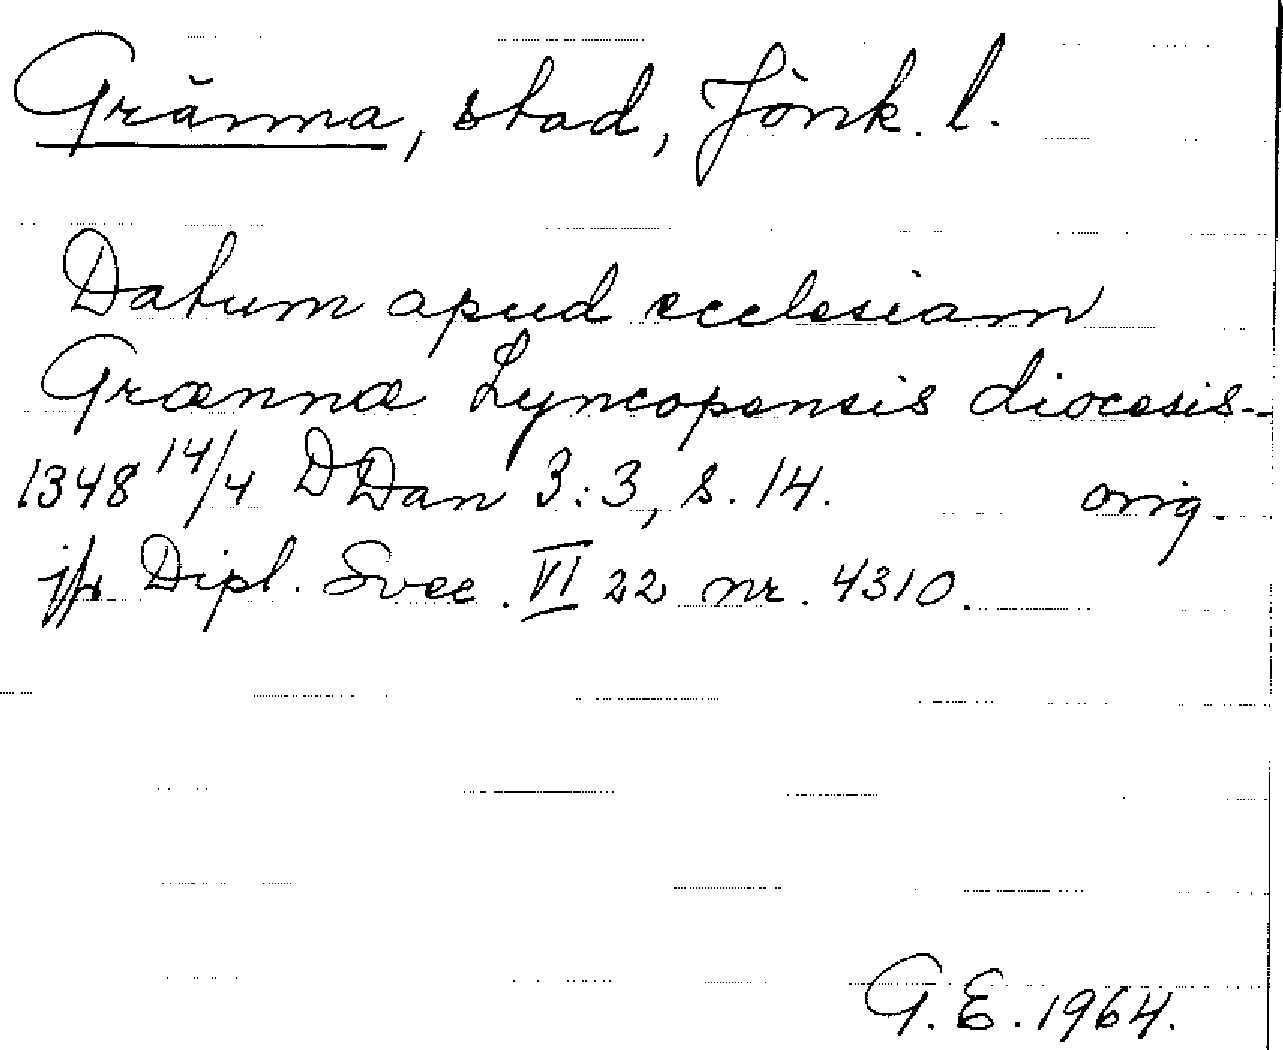 Gränna, stad, Jönk. l.
Datum apud ecclesiam
Grænnæ Lyncopensis diocesis-
1348 14/4 DDan 3:3, s. 14. orig.
jfr Dipl. Svec. VI 22 nr. 4310.
G. E. 1964.